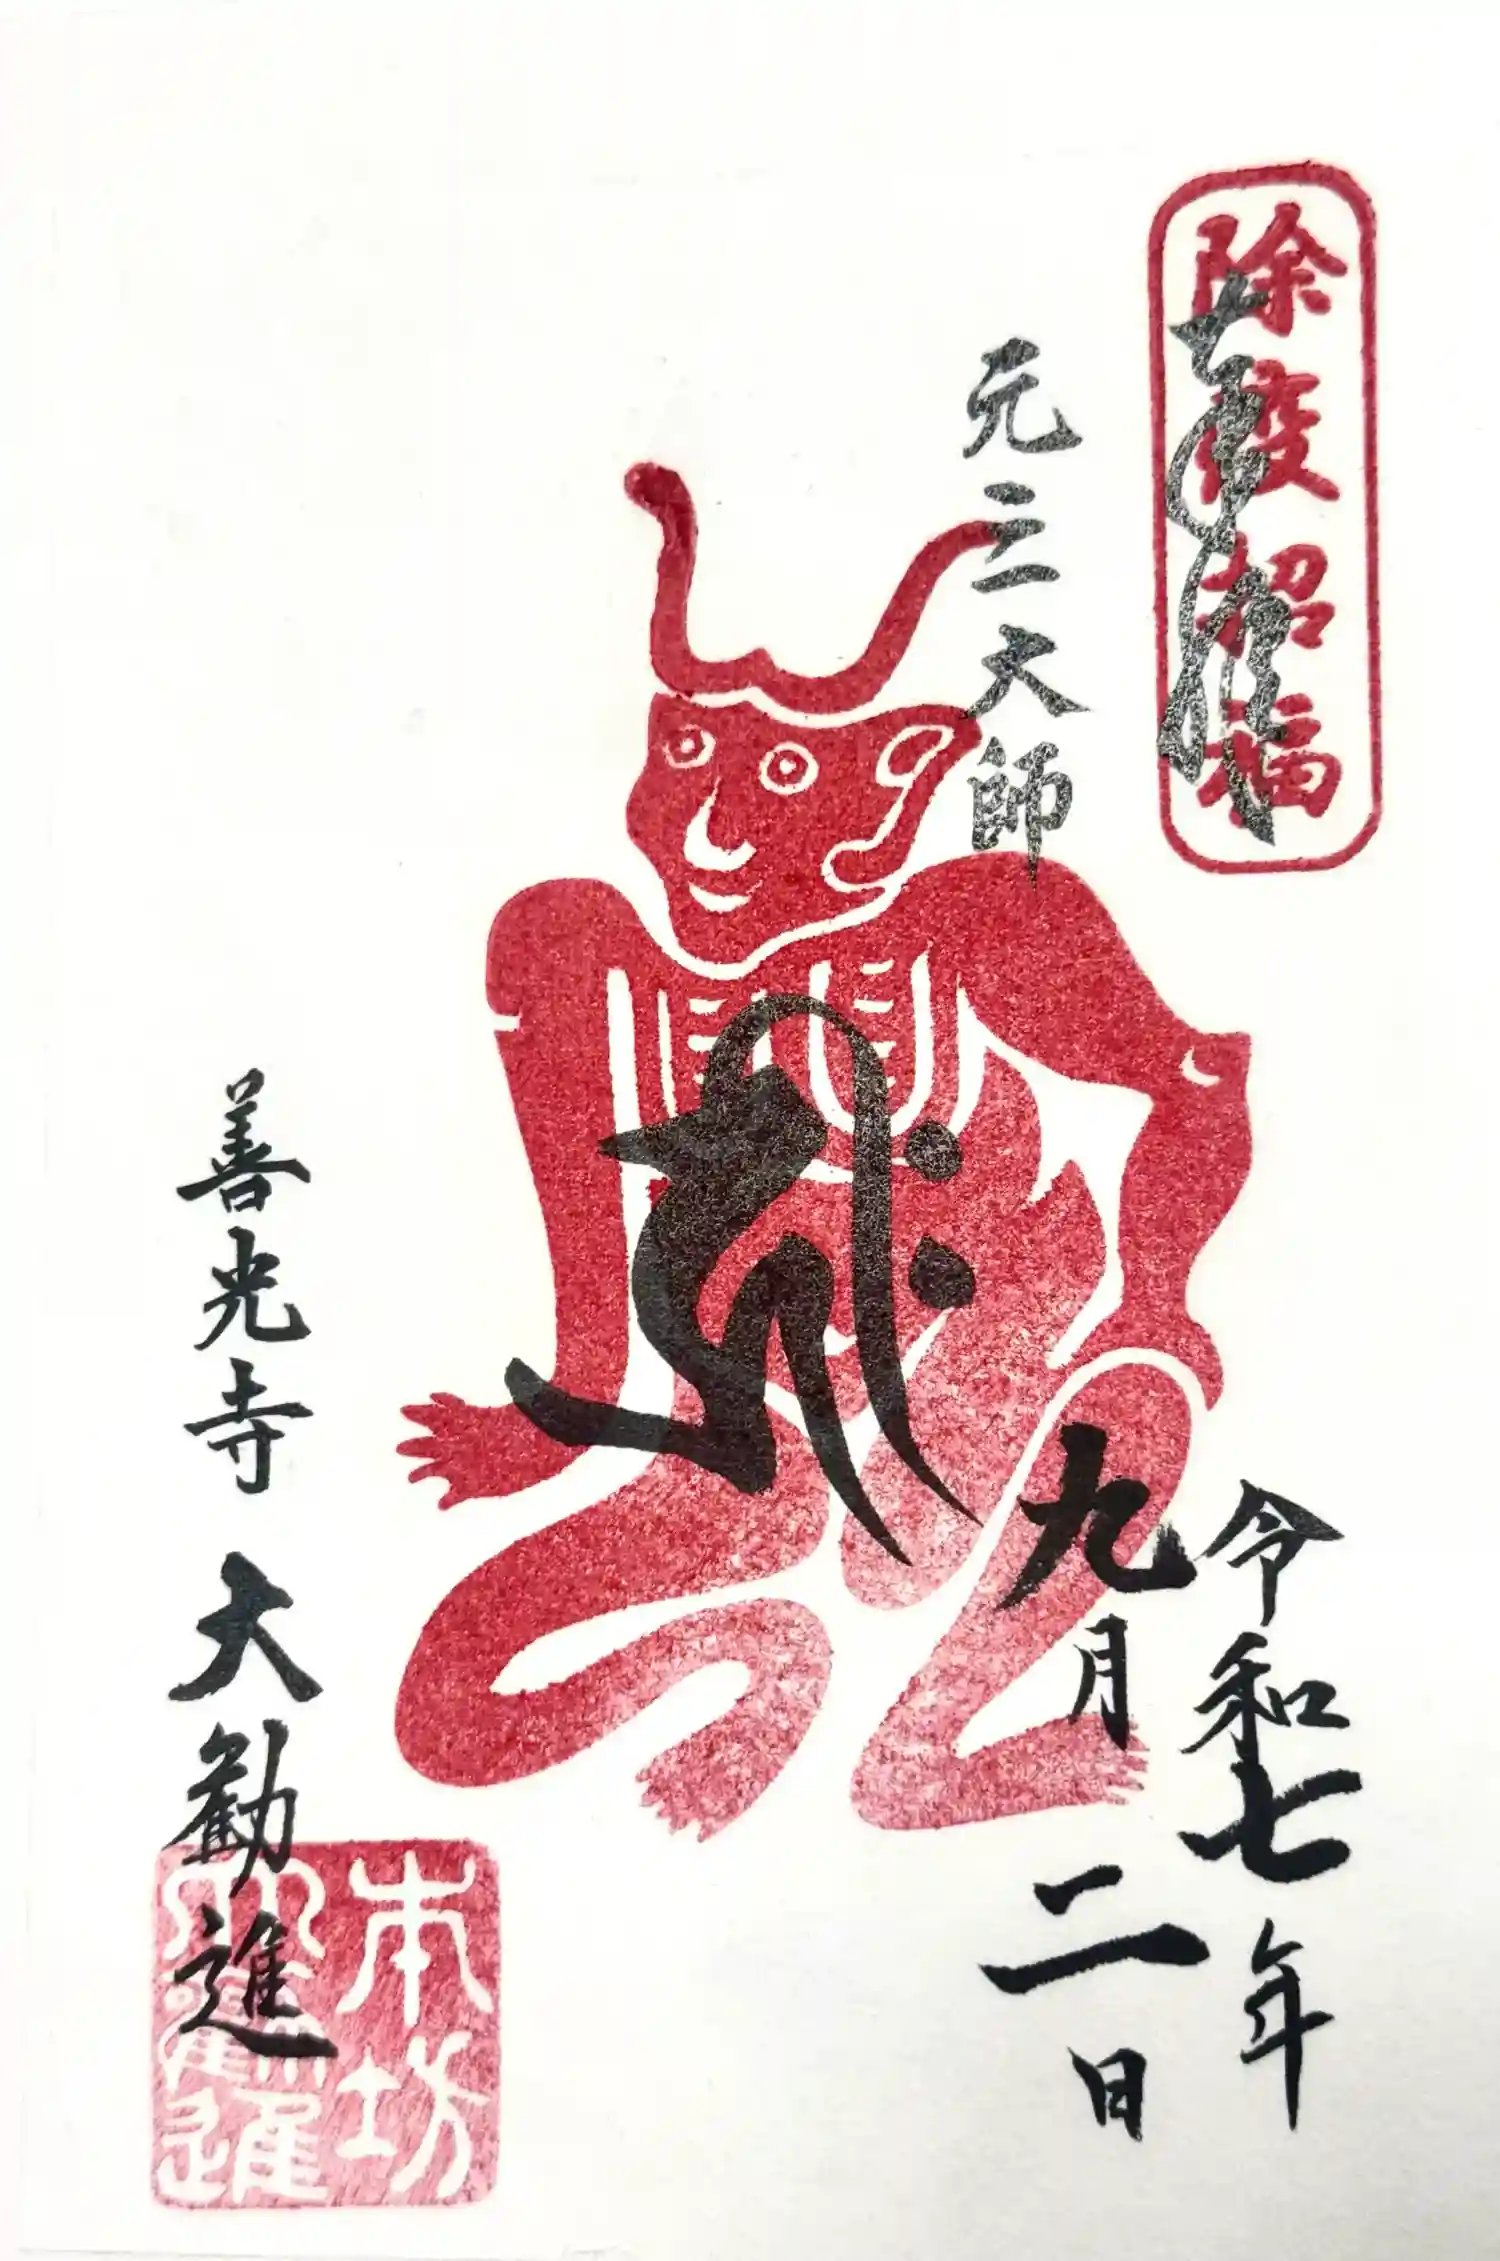 除疫招福
奉拝
元三大師
令和七年
九月二日
善光寺 大勧進
本坊
大勧進